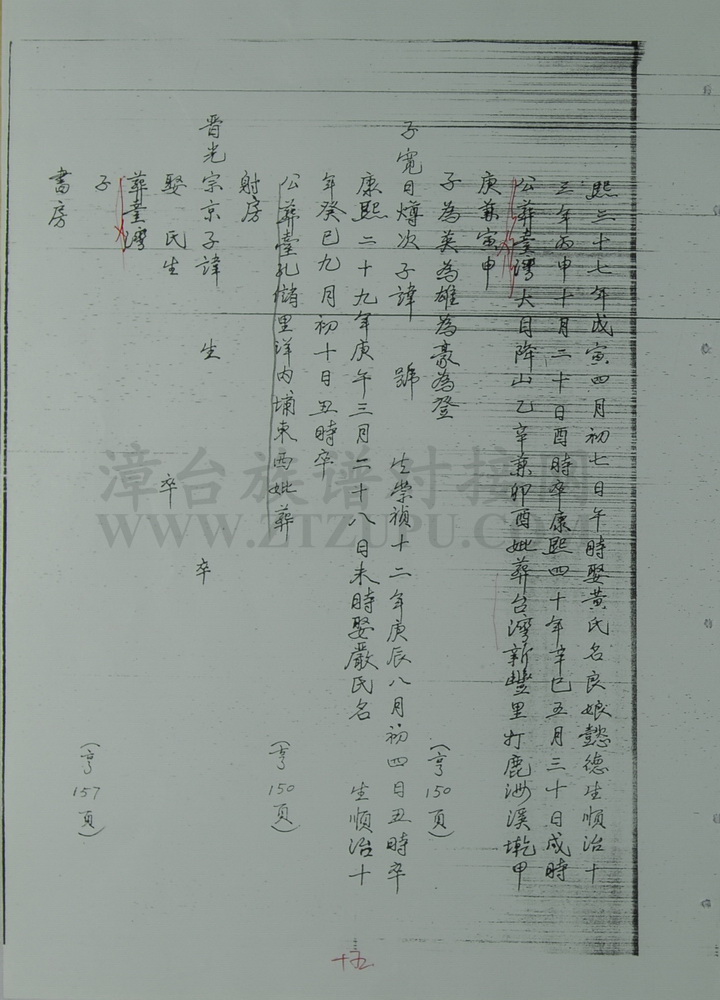 熙三十七年戊寅四月初七日午時娶黃氏名良娘懿德生順治十
三年丙申十月二十日酉時卒康熙四十年辛巳五月三十日戌時
公葬臺灣大目降山乙辛兼卯酉妣葬台灣新豐里打鹿洲溪墘甲
庚兼寅申
子為英為雄為豪為登 (亨150頁)
子寬日燇次子諱 號 生崇禎十二年庚辰八月初四日丑時卒
康熙二十九年庚午三月二十八日未時娶嚴氏名 生順治十
年癸巳九月初十日丑時卒
公葬臺孔雀里洋內埔東西妣葬 (亨150頁)
射房
晋光宗京子諱 生 卒
娶 氏生 卒
葬臺灣
子
書房 (亨157頁)
十五
漳台族谱对接网
WWW.ZTZUPU.COM